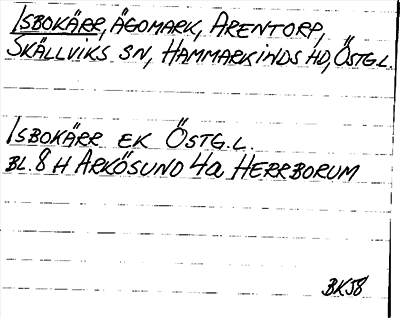 ISBOKÄRR, ÄGOMARK, ARENTORP,
SKÄLLVIKS SN, HAMMARKINDS HD, ÖSTG.L.
ISBOKÄRR EK ÖSTG.L.
BL. 8 H ARKÖSUND 4a HERRBORUM
BK58